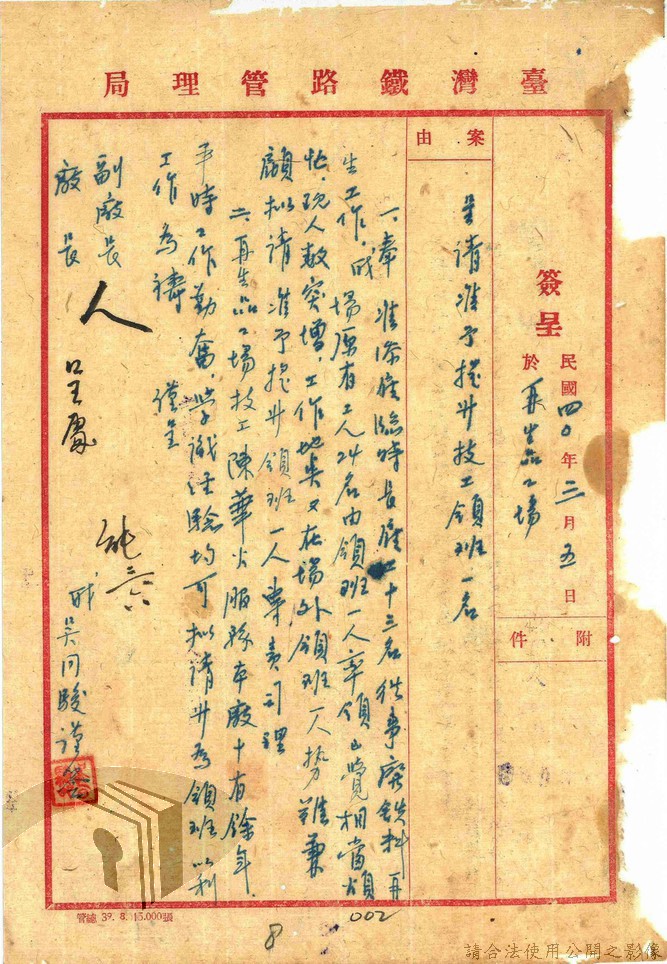 臺灣鐵路管理局
簽呈 民國四〇年三月五日
於再生品工場
附件
案由
呈請准予擢升技工領班一名
一、奉 准添雇臨時長雇工十三名從事廢鉄料再
生工作，職場原有工人24名由領班一人率領已覺相當煩
忙，現人数突增，工作地点又在場外，領班一人势难兼
顧拟請 准予擢升領班一人專責司理
二、再生品工場技工陳華火服務本廠十有餘年，
平時工作勤奮，学識经驗均可拟請升為領班以利
工作為禱
謹呈
副廠長
廠長
職吳同駿謹簽
管總 39. 8. 15.000張
002
8
請合法使用公開之影像